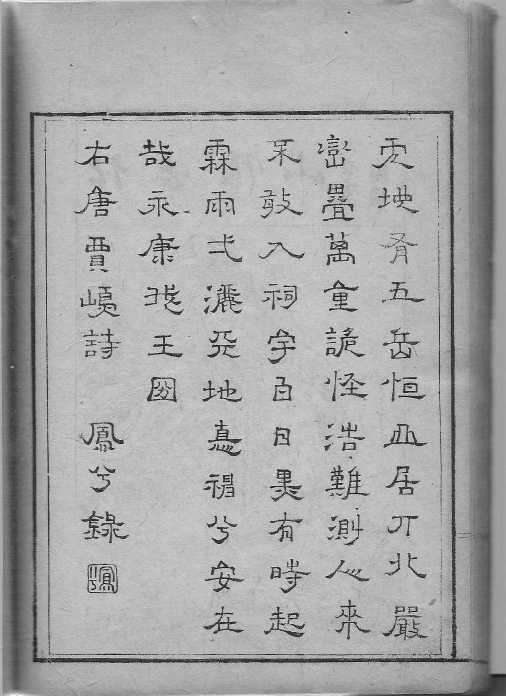 天地有五岳恒岳居丌北嚴
巒疊萬重詭怪浩難測人來
不敢入祠宇白日黑有時起
霖雨弌灑天地惪神兮安在
哉永康我王國
右唐賈島詩　鳳兮錄